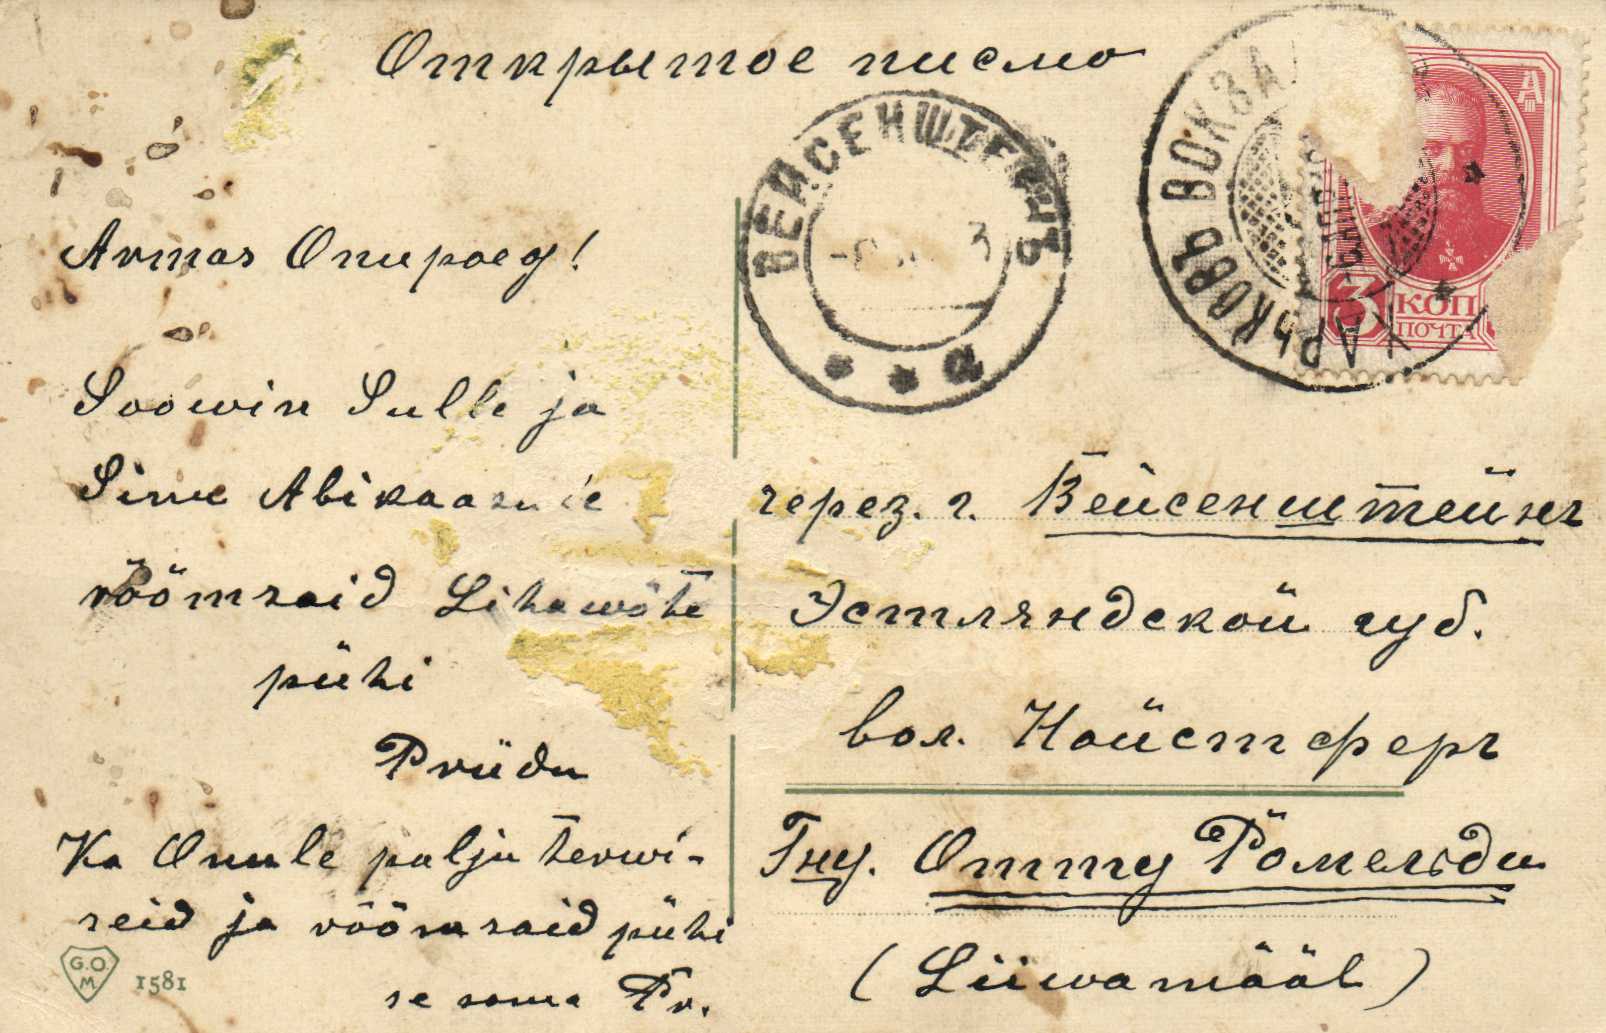 Открытое писмо
ВЕЙСЕНШТЕЙНЪ
3
а
ХАРЬКОВЪ ВОКЗА
3 КОП
ПОЧТА
Armas Onupoeg!
Soowin Sulle ja
Sinu Abikaasale
rõõmsaid Lihawõte
pühi
Priidu
Ka Onule palju terwi-
seid ja rõõmsaid pühi
se sama Pr.
через. г. Вейсенштейнъ
Эстляндской губ.
вол. Нойстферъ
Гну. Отту Рöмельди
(Liiwamääl)
G.O.
M.
1581